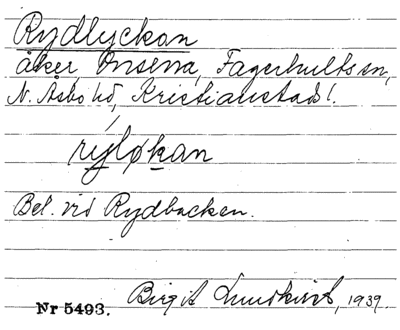 Rydlyckan
åker Onserna, Fagerhults sn,
N. Åsbo hd, Kristianstads l.
rýløkan
Bel. vid Rydbacken.
Birgit Lundkvist, 1939.
Nr 5493.